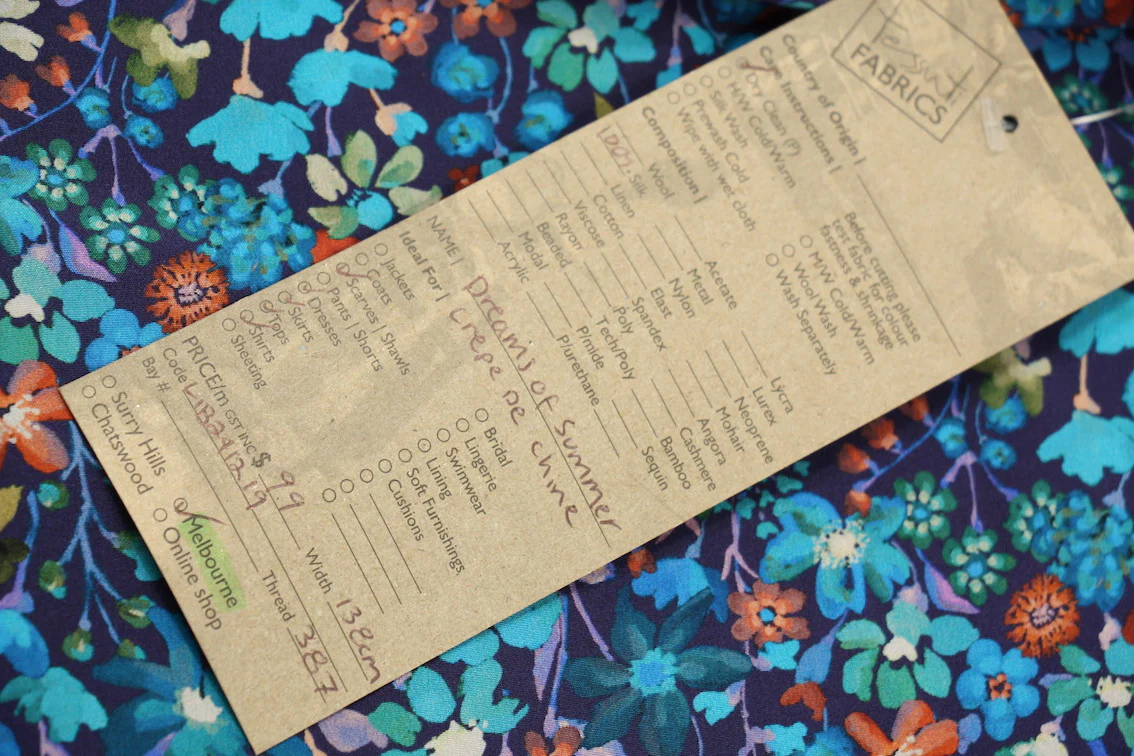 Tessuti
FABRICS
Country of Origin |
Care Instructions |
Dry Clean (P)
H/W Cold/Warm
Soft Wash
Prewash Cold
Wipe with wet cloth
Before cutting please
test fabric for colour
fastness & shrinkage
M/W Cold/Warm
Wool Wash
Wash Separately
Composition |
Wool
100% Silk
Linen
Cotton
Viscose
Rayon
Beaded
Modal
Acrylic
Acetate
Metal
Nylon
Elast
Spandex
Poly
Tech/Poly
P/mide
P/urethane
Lycra
Lurex
Neoprene
Mohair
Angora
Cashmere
Bamboo
Sequin
NAME | Dreams of Summer
Crepe De Chine
Ideal For |
Jackets
Coats
Scarves | Shawls
Pants | Shorts
Dresses
Skirts
Tops
Shirts
Sheeting
Bridal
Lingerie
Swimwear
Lining
Soft Furnishings
Cushions
PRICE/m GST INC $ 99 Width 138cm
Code LIB241219 Thread 387
Bay #
Surry Hills
Chatswood
Melbourne
Online shop